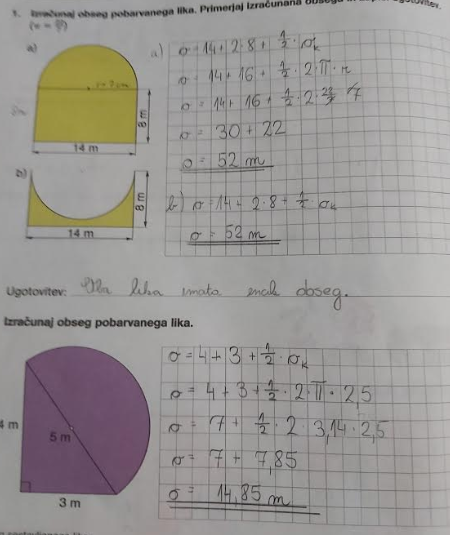 1. Izračunaj obseg pobarvanega lika. Primerjaj izračunana obsega
a)
r = 7 cm
8 m
14 m
a) σ = 14 + 2·8 + 1/2 · σk
σ = 14 + 16 + 1/2 · 2·π·r
σ = 14 + 16 + 1/2 · 2· 22/7 · 7
σ = 30 + 22
σ = 52 m
b)
8 m
14 m
b) σ = 14 + 2·8 + 1/2 σk
σ = 52 m
Ugotovitev: Oba lika imata enak obseg.
Izračunaj obseg pobarvanega lika.
4 m
5 m
3 m
σ = 4 + 3 + 1/2 · σk
σ = 4 + 3 + 1/2 · 2·π · 2,5
σ = 7 + 1/2 · 2 · 3,14 · 2,5
σ = 7 + 7,85
σ = 14,85 m